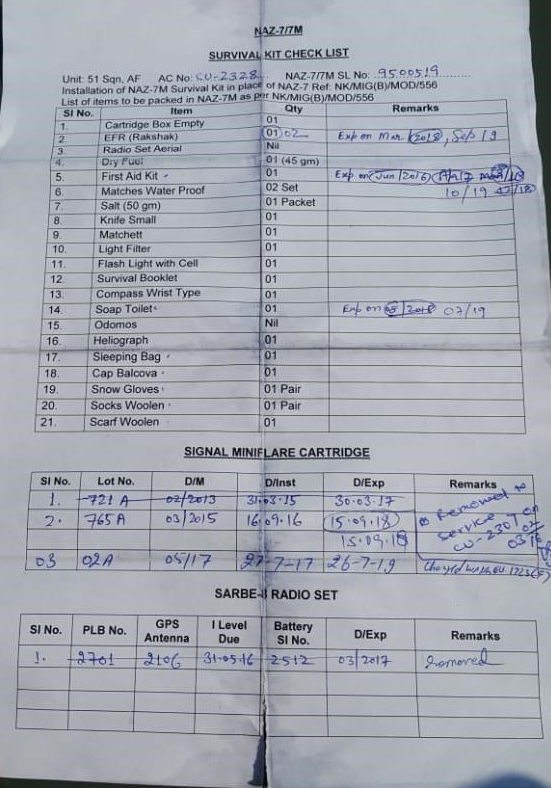 NAZ-7/7M
SURVIVAL KIT CHECK LIST
Unit: 51 Sqn, AF AC No: CU-2328 NAZ-7/7M SL No: 9500519
Installation of NAZ-7M Survival Kit in place of NAZ-7 Ref: NK/MIG(B)/MOD/556
List of items to be packed in NAZ-7M as per NK/MIG(B)/MOD/556
Sl No. Item Qty Remarks
1. Cartridge Box Empty 01
2. EFR (Rakshak) 01 02 Exp on Mar 2018, Sep 19
3. Radio Set Aerial Nil
4. Dry Fuel 01 (45 gm)
5. First Aid Kit 01 Exp on Jun/2016
6. Matches Water Proof 02 Set 10/19
7. Salt (50 gm) 01 Packet
8. Knife Small 01
9. Matchett 01
10. Light Filter 01
11. Flash Light with Cell 01
12. Survival Booklet 01
13. Compass Wrist Type 01
14. Soap Toilet 01 Exp on 05/2018 07/19
15. Odomos Nil
16. Heliograph 01
17. Sleeping Bag 01
18. Cap Balcova 01
19. Snow Gloves 01 Pair
20. Socks Woolen 01 Pair
21. Scarf Woolen 01
SIGNAL MINIFLARE CARTRIDGE
Sl No. Lot No. D/M D/Inst D/Exp Remarks
1. 721 A 02/2013 31.03.15 30.03.17
2. 765A 03/2015 16.09.16 15.09.18 Removed to service on CU-2307
15.09.18
03 02A 05/17 27-7-17 26-7-19
SARBE-8 RADIO SET
Sl No. PLB No. GPS Antenna I Level Due Battery Sl No. D/Exp Remarks
1. 2701 2106 31-05-16 2512 03/2017 Removed